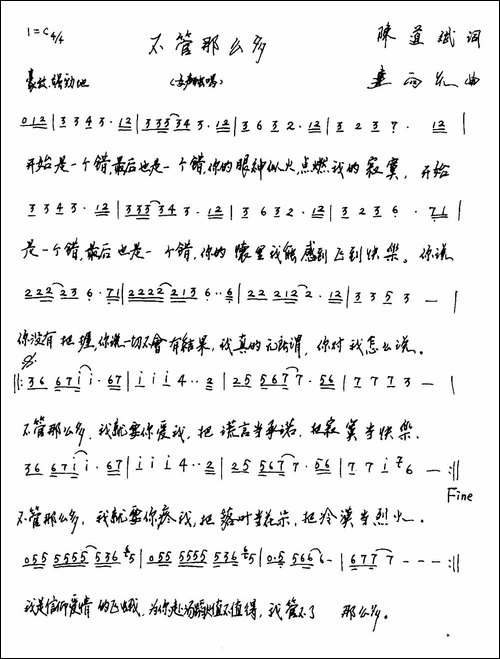 1=C 4/4
不管那么多
陈道斌 词
曲
豪放、强劲地
012 | 3 3 4 3 · 12 | 333343 · 12 | 3 6 3 2 · 12 | 3 2 3 7 · 12 |
开始是一个错,最后也是一个错,你的眼神似火,点燃我的寂寞, 开始
3 3 4 3 · 12 | 333343 · 12 | 3 6 3 2 · 12 | 3 2 3 6 · 71 |
是一个错,最后也是一个错,你的怀里我能感到飞到快樂。你说
22223 6 · 71 | 2222213 6 · · 6 | 22 2122 · 12 | 3 3 5 3 — |
你没有把握,你说一切不會有结果,我真的无所谓,你对我怎么说。
‖: 36 67ii · 67 | i i i 4 · · 2 | 25 5677 · 56 | 7 7 7 3 — |
不管那么多,我就要你爱我,把谎言当承诺,把寂寞当快樂.
36 67ii · 67 | i i i 4 · · 2 | 25 5677 · 56 | 7 7 i 7 6 — :‖
Fine
不管那么多,我就要你疼我,把落叶当花朵,把冷漠当烈火.
055 5555 536 65 | 055 5555 536 65 | 0·5 566 · | 6777 — — — :‖
我是信仰爱情的飞蛾,为你赴汤蹈火值不值得,我管不了 那么多。